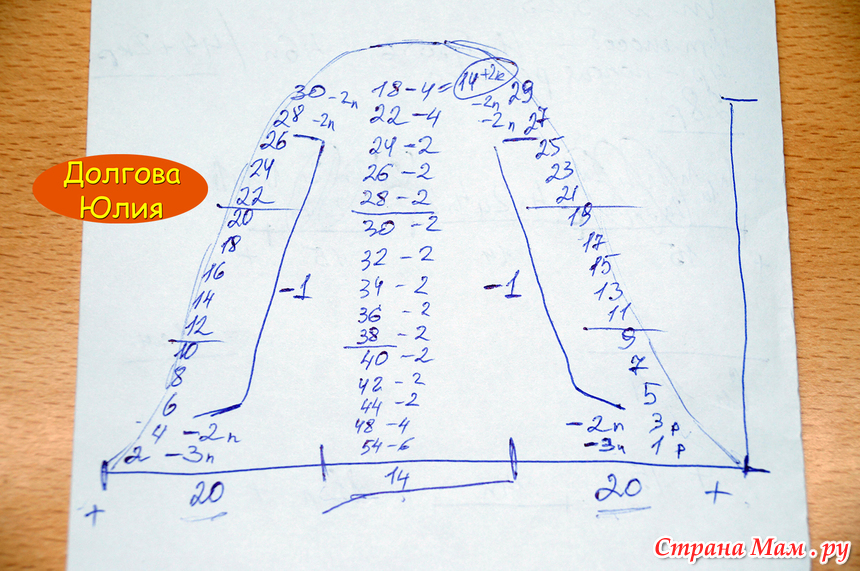 30 -2п 18-4= 14+2к -2п 29
28 -2п 22-4 -2п 27
26 24-2 25
24 26-2 23
22 28-2 21
20 30-2 19
18 32-2 17
16 34-2 15
-1 -1
14 36-2 13
12 38-2 11
10 40-2 9
8 42-2 7
6 44-2 5
4 -2п 48-4 -2п 3р
2 -3п 54-6 -3п 1р
20 14 20
+ +
Долгова
Юлия
Страна Мам.ру